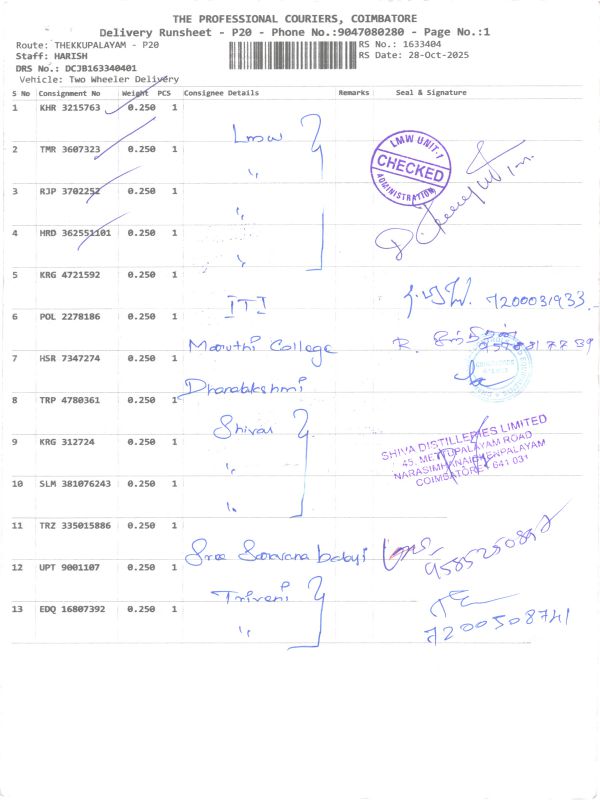 THE PROFESSIONAL COURIERS, COIMBATORE
Delivery Runsheet - P20 - Phone No.:9047080280 - Page No.:1
Route: THEKKUPALAYAM - P20
RS No.: 1633404
Staff: HARISH
RS Date: 28-Oct-2025
DRS No.: DCJB163340401
Vehicle: Two Wheeler Delivery
S No Consignment No Weight PCS Consignee Details Remarks Seal & Signature
1 KHR 3215763 0.250 1
Lmw
LMW UNIT-1
CHECKED
ADMINISTRATION
2 TMR 3607323 0.250 1
"
3 RJP 3702252 0.250 1
"
4 HRD 362551101 0.250 1
"
5 KRG 4721592 0.250 1
ITI
7200031933.
6 POL 2278186 0.250 1
Maruthi College R.
7 HSR 7347274 0.250 1
Dhanalakshmi
8 TRP 4780361 0.250 1
Shivas
SHIVA DISTILLERIES LIMITED
45, METTUPALAYAM ROAD
NARASIMHANAICKENPALAYAM
COIMBATORE - 641 031
9 KRG 312724 0.250 1
"
10 SLM 381076243 0.250 1
"
11 TRZ 335015886 0.250 1
Sree Saravana babyi
12 UPT 9001107 0.250 1
Triveni
13 EDQ 16807392 0.250 1
"
7200508741